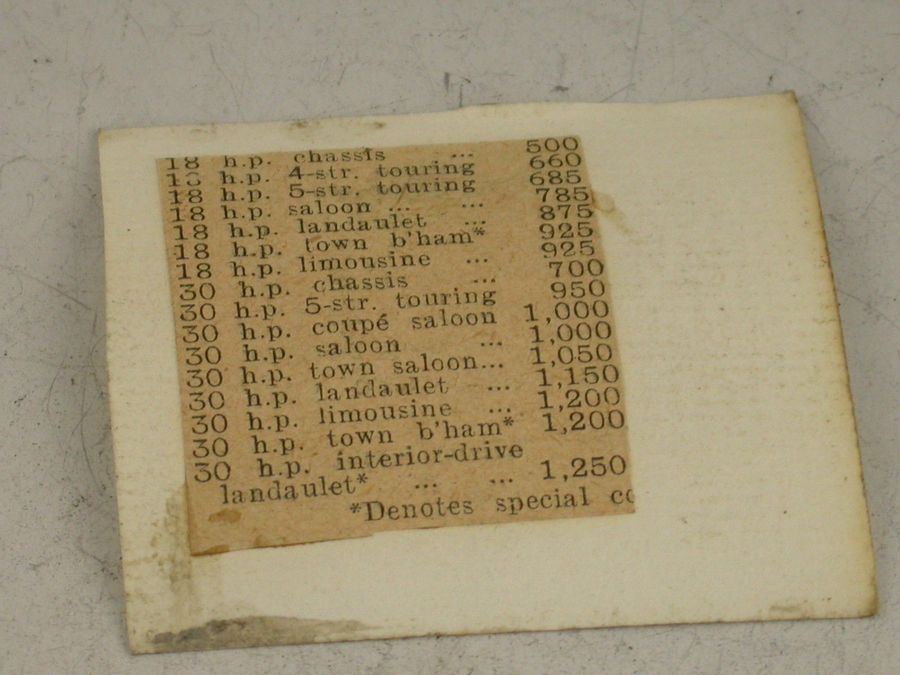 18 h.p. chassis ... 500
18 h.p. 4-str. touring 660
18 h.p. 5-str. touring 685
18 h.p. saloon ... ... 785
18 h.p. landaulet ... 875
18 h.p. town b'ham* 925
18 h.p. limousine ... 925
30 h.p. chassis ... 700
30 h.p. 5-str. touring 950
30 h.p. coupé saloon 1,000
30 h.p. saloon ... 1,000
30 h.p. town saloon... 1,050
30 h.p. landaulet ... 1,150
30 h.p. limousine ... 1,200
30 h.p. town b'ham* 1,200
30 h.p. interior-drive
landaulet* ... ... 1,250
*Denotes special